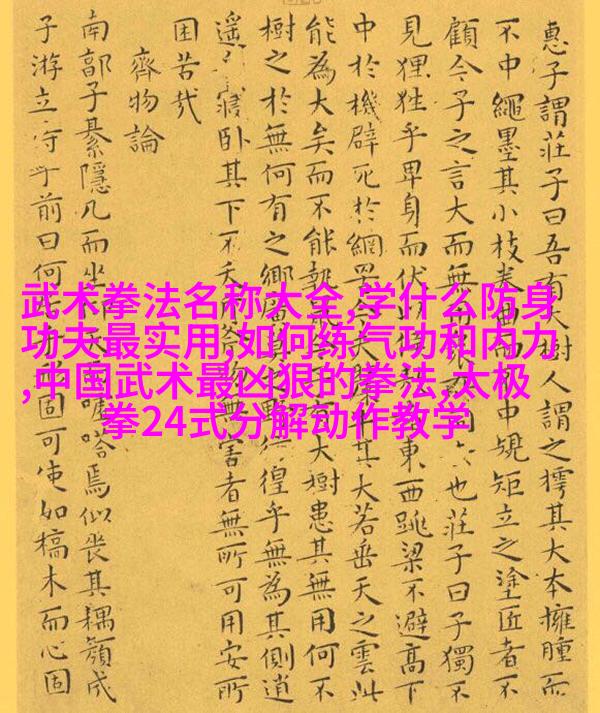 武术拳法名称大全,学什么防身
功夫最实用,如何练气功和内力
,中国武术最凶狠的拳法,太极
拳24式分解动作教学
惠子謂莊子曰吾有大樹人謂之樗其大本擁腫而
不中繩墨其小枝卷曲而不中規矩立之塗匠者不
顧今子之言大而無用也莊子曰子獨不
見狸狌乎卑身而伏東西跳梁不避高下
中於機辟死於網罟今夫其大若垂天之雲此
能為大矣而不能執鼠大樹患其無用何不
樹之於無何有之鄉廣莫徨乎無為其側逍
遙寢臥其下不夭物無害者無所可用安所
困苦哉
齊物論
南郭子綦隱几而坐噓嗒焉似喪其耦顏成
子游立侍乎前曰何固可使如槁木而心固